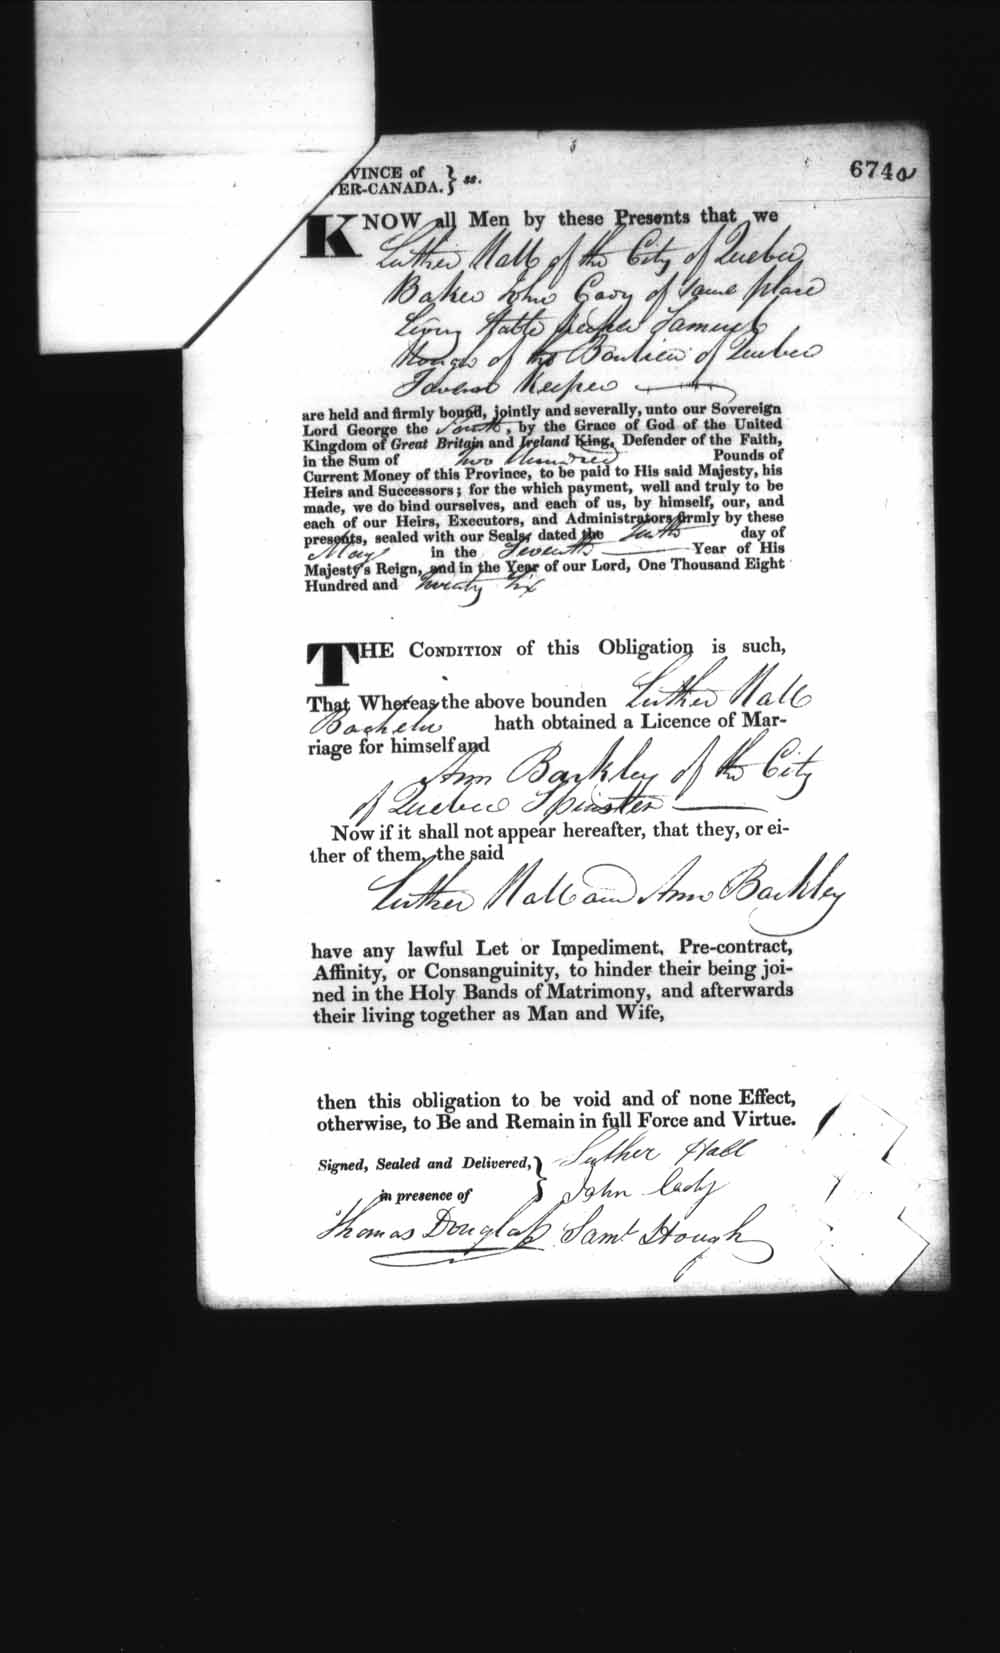 674a
VINCE of
ER-CANADA. } ss.
KNOW all Men by these Presents that we
Luther Hall of the City of Quebec
Baker John Cady of same place
Livery Stable Keeper Samuel
Hough of the Banlieu of Quebec
Tavern Keeper
are held and firmly bound, jointly and severally, unto our Sovereign
Lord George the Fourth, by the Grace of God of the United
Kingdom of Great Britain and Ireland King, Defender of the Faith,
in the Sum of Two Hundred Pounds of
Current Money of this Province, to be paid to His said Majesty, his
Heirs and Successors; for the which payment, well and truly to be
made, we do bind ourselves, and each of us, by himself, our, and
each of our Heirs, Executors, and Administrators firmly by these
presents, sealed with our Seals, dated the Tenth day of
May in the Seventh Year of His
Majesty's Reign, and in the Year of our Lord, One Thousand Eight
Hundred and twenty six
THE CONDITION of this Obligation is such,
That Whereas the above bounden Luther Hall
Bachelor hath obtained a Licence of Mar-
riage for himself and
Ann Barkley of the City
of Quebec Spinster
Now if it shall not appear hereafter, that they, or ei-
ther of them, the said
Luther Hall and Ann Barkley
have any lawful Let or Impediment, Pre-contract,
Affinity, or Consanguinity, to hinder their being joi-
ned in the Holy Bands of Matrimony, and afterwards
their living together as Man and Wife,
then this obligation to be void and of none Effect,
otherwise, to Be and Remain in full Force and Virtue.
Signed, Sealed and Delivered, } Luther Hall
in presence of John Cady
Thomas Douglass Saml Hough